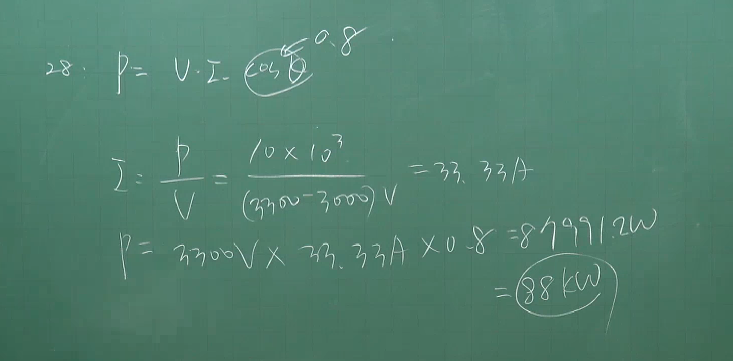 28. P = V·I. cosθ ← 0.8.
I = P/V = 10×10³/(3300-3000)V = 33.33A
P = 3300V × 33.33A × 0.8 = 87991.2W
= 88kW